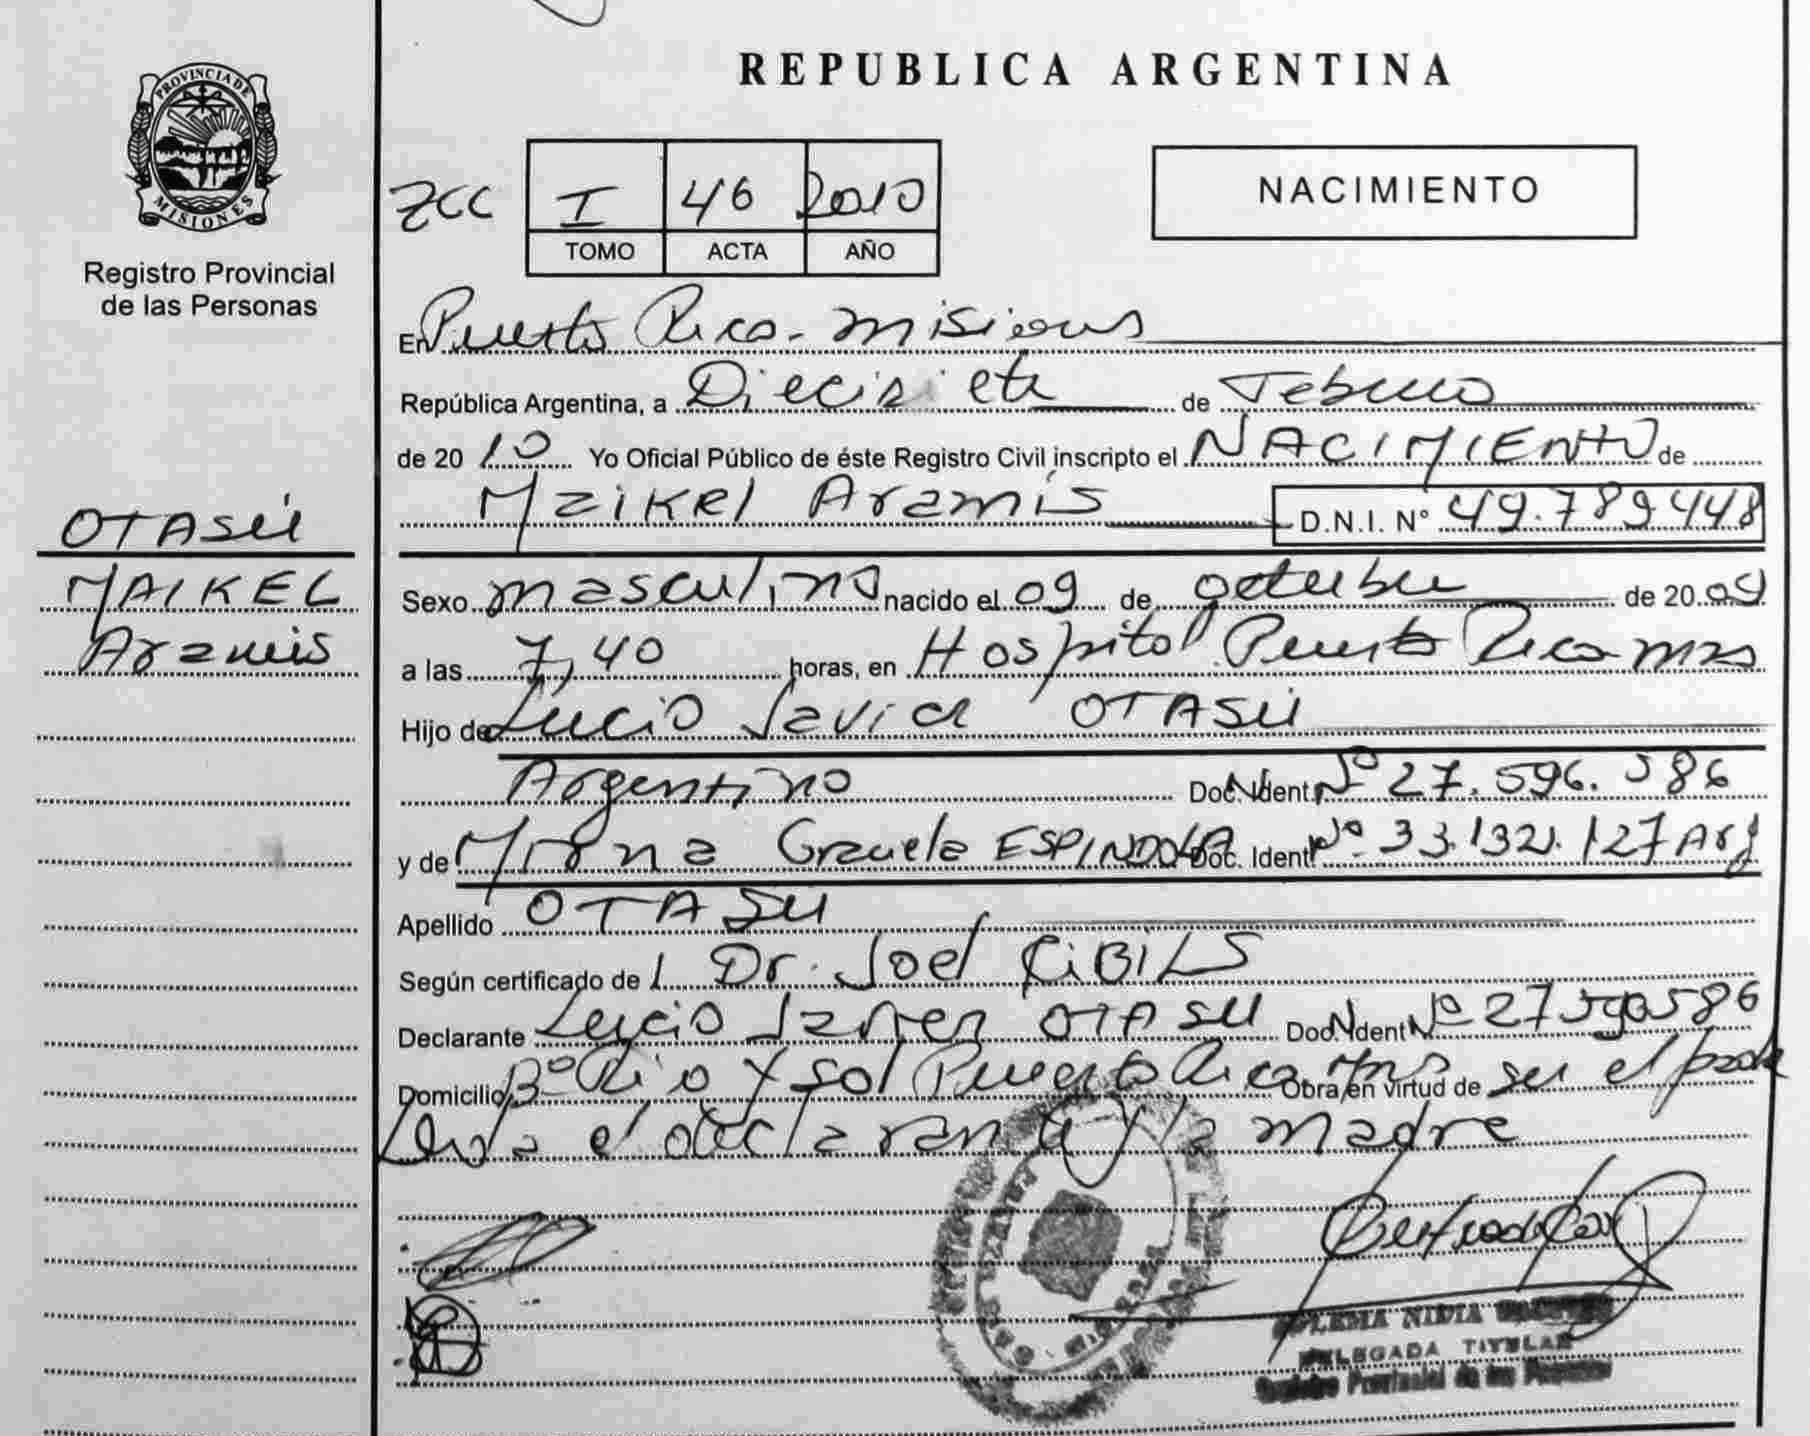 PROVINCIA DE
MISIONES
Registro Provincial
de las Personas
OTASÚ
MAIKEL
Aramis
REPUBLICA ARGENTINA
ZCC I 46 2010
TOMO ACTA AÑO
NACIMIENTO
En Puerto Rico - Misiones
República Argentina, a Diecisiete de Febrero
de 2010 Yo Oficial Público de éste Registro Civil inscripto el NACIMIENTO de
Maikel Aramis D.N.I. Nº 49.789448
Sexo masculino nacido el 09 de octubre de 2009
a las 7,40 horas, en Hospital Puerto Rico mns
Hijo de Lucio Javier OTASÚ
Argentino Doc. Ident Nº 27.596.586
y de Mirna Graciela ESPINDOLA Doc. Ident Nº 33.132.127 Arg
Apellido OTASU
Según certificado de Dr. Joel CIBILS
Declarante Lucio Javier OTASU Doc. Ident Nº 27596586
Domicilio Bº Rio y Sol Puerto Rico mns Obra en virtud de ser el padre
Leida el declarante y la madre
DELEGADA TITULAR
Registro Provincial de las Personas